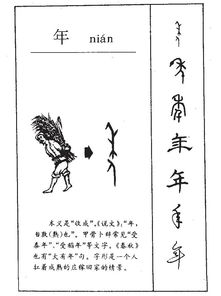 年 nián
本义是“收成”。《说文》：“年，
谷熟(熟)也”。甲骨卜辞常见“受
黍年”、“受稻年”等文字。《春秋》
也有“大有年”句。字形是一个人
扛着成熟的庄稼回家的情景。
年
年
年